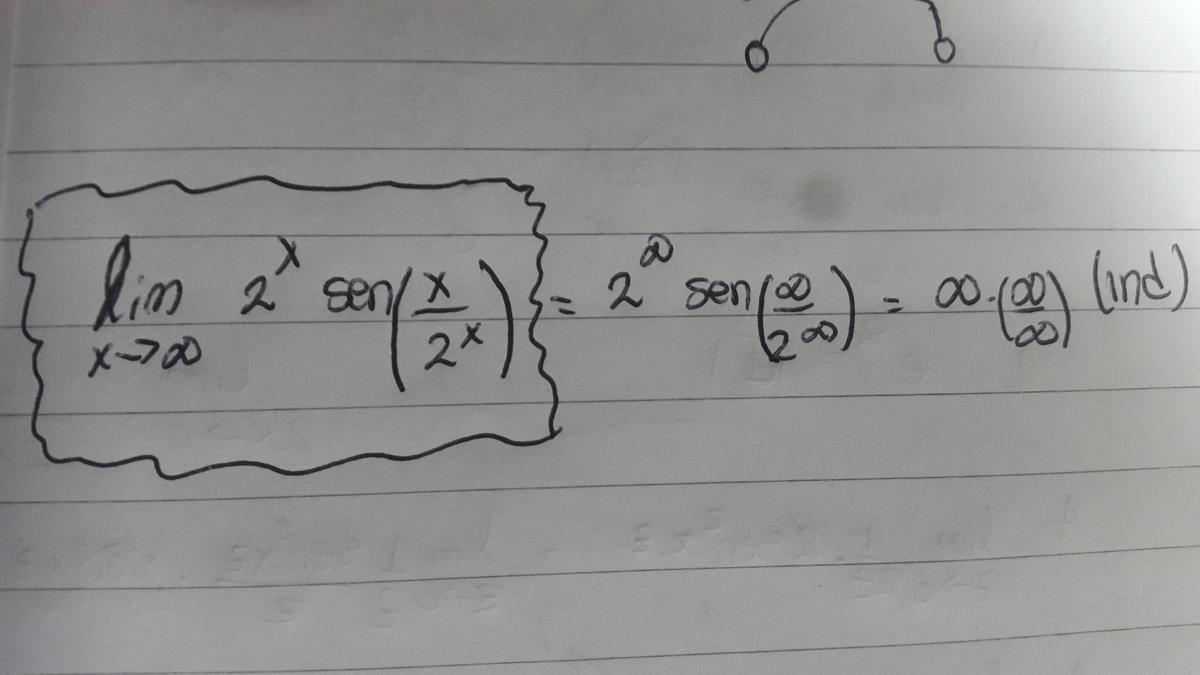 lim x→∞ 2^x sen(x/2^x) = 2^∞ sen(∞/2^∞) = ∞·(∞/∞) (ind)